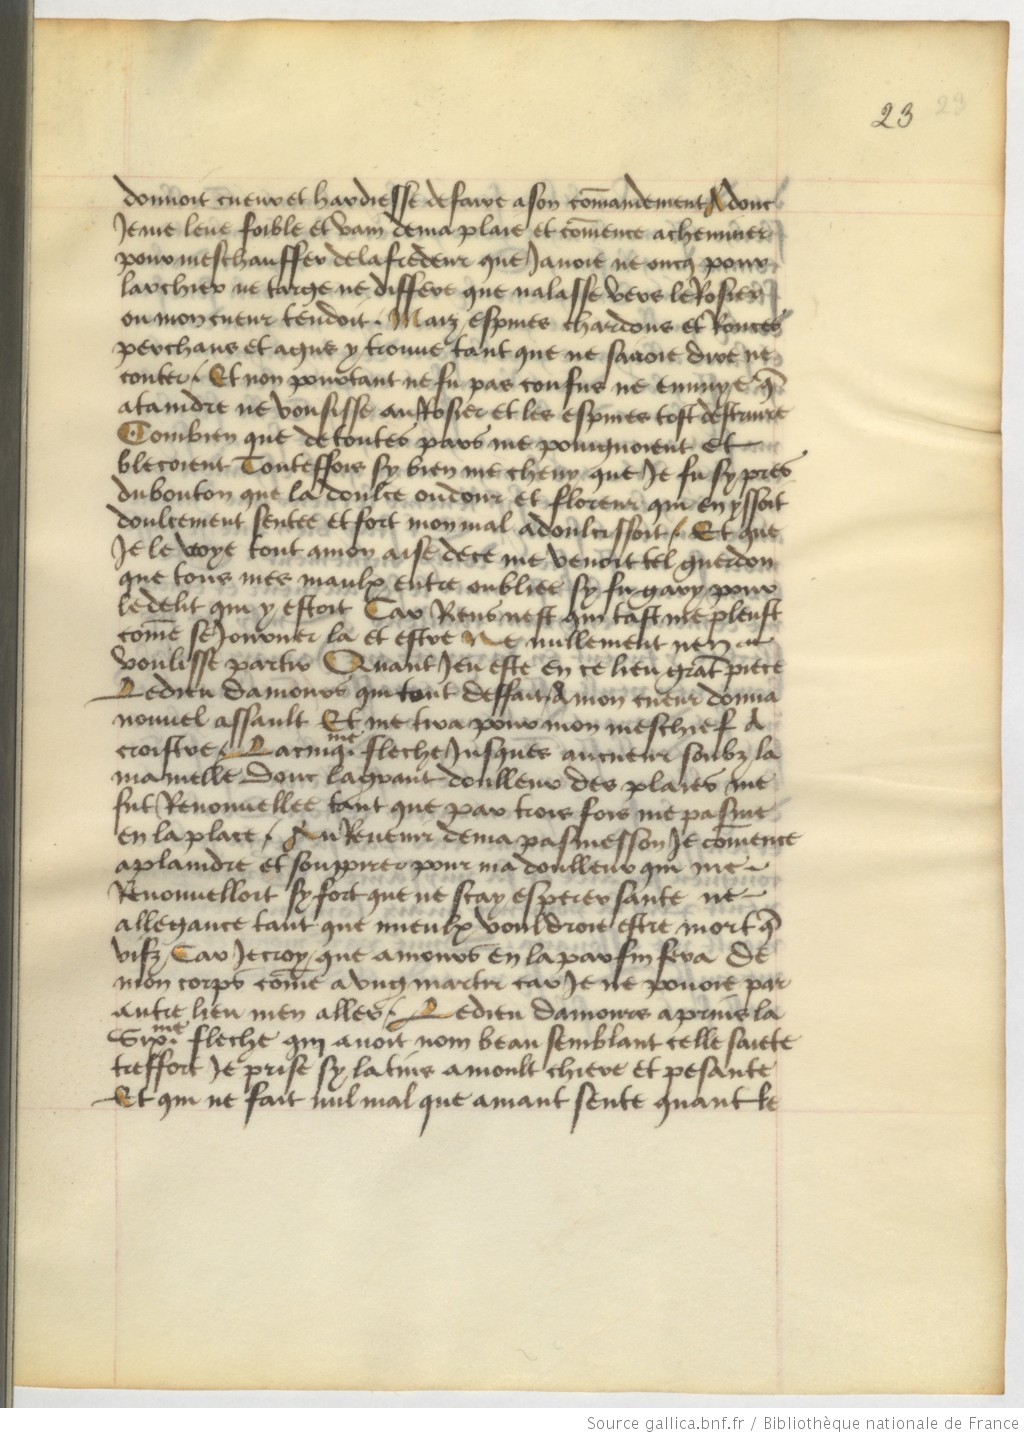 23
donnoit cueur et hardiesse de faire a son comandement Adonc
Je me leve foible et vain de ma plaie et comence a cheminer
pour meschauffer de la fredeur que Javoie ne oncq pour
larchier ne targe ne differe que nalasse vers le Rosier
ou mon cueur tendoit. Maiz espines chardons et Ronces
perchans et agus y trouve tant que ne savoie dire ne
conter. Et non pourtant ne fu pas confus ne ennuye q̃
ataindre ne vousisse au Rosier et les espines tost destruire
Combien que de toutes pars me poingnoient et
blecoient Touteffois sy bien me cheny que Je fu sy pres
du bouton que la doulce oudour et floreur qui en yssoit
doulcement sentee et fort mon mal adoulcissoit. Et que
Je le voye tout a mon aise de ce me venoit tel guerdon
que tous mes maulx entre oublie sy fu gary pour
le delit qui y estoit Car Riens nest qui tast me pleust
come seJourner la et estre Ne nullement nen
voulisse partir Quant Jeu este en ce lieu grãt piece
Le dieu damours qui tout deffait A mon cueur donna
nouvel assault Et me tira pour mon meschief A
croistre. La cinq.me fleche Jusques au cueur soubz la
mamelle Donc la grant doulleur des plaies me
fut Renouvellee tant que par trois fois me pasme
en la place. Au Revenir de ma pasmesson Je comence
a plaindre et souppirer pour ma doulleur qui me
Renouvelloit sy fort que ne scay esperer sante ne
allegance tant que mieulx vouldroie estre mort q̃
vifz, Car Je croy que amours en la par fin fera de
mon corps come a ung martir car Je ne povoie par
autre lieu men aller. Le dieu damours a prins la
Six.me fleche qui avoit nom beau semblant celle saiete
treffort Je prise sy la tins a moult chiere et pesante
Et qui ne fait nul mal que amant sente quant le
Source gallica.bnf.fr / Bibliothèque nationale de France